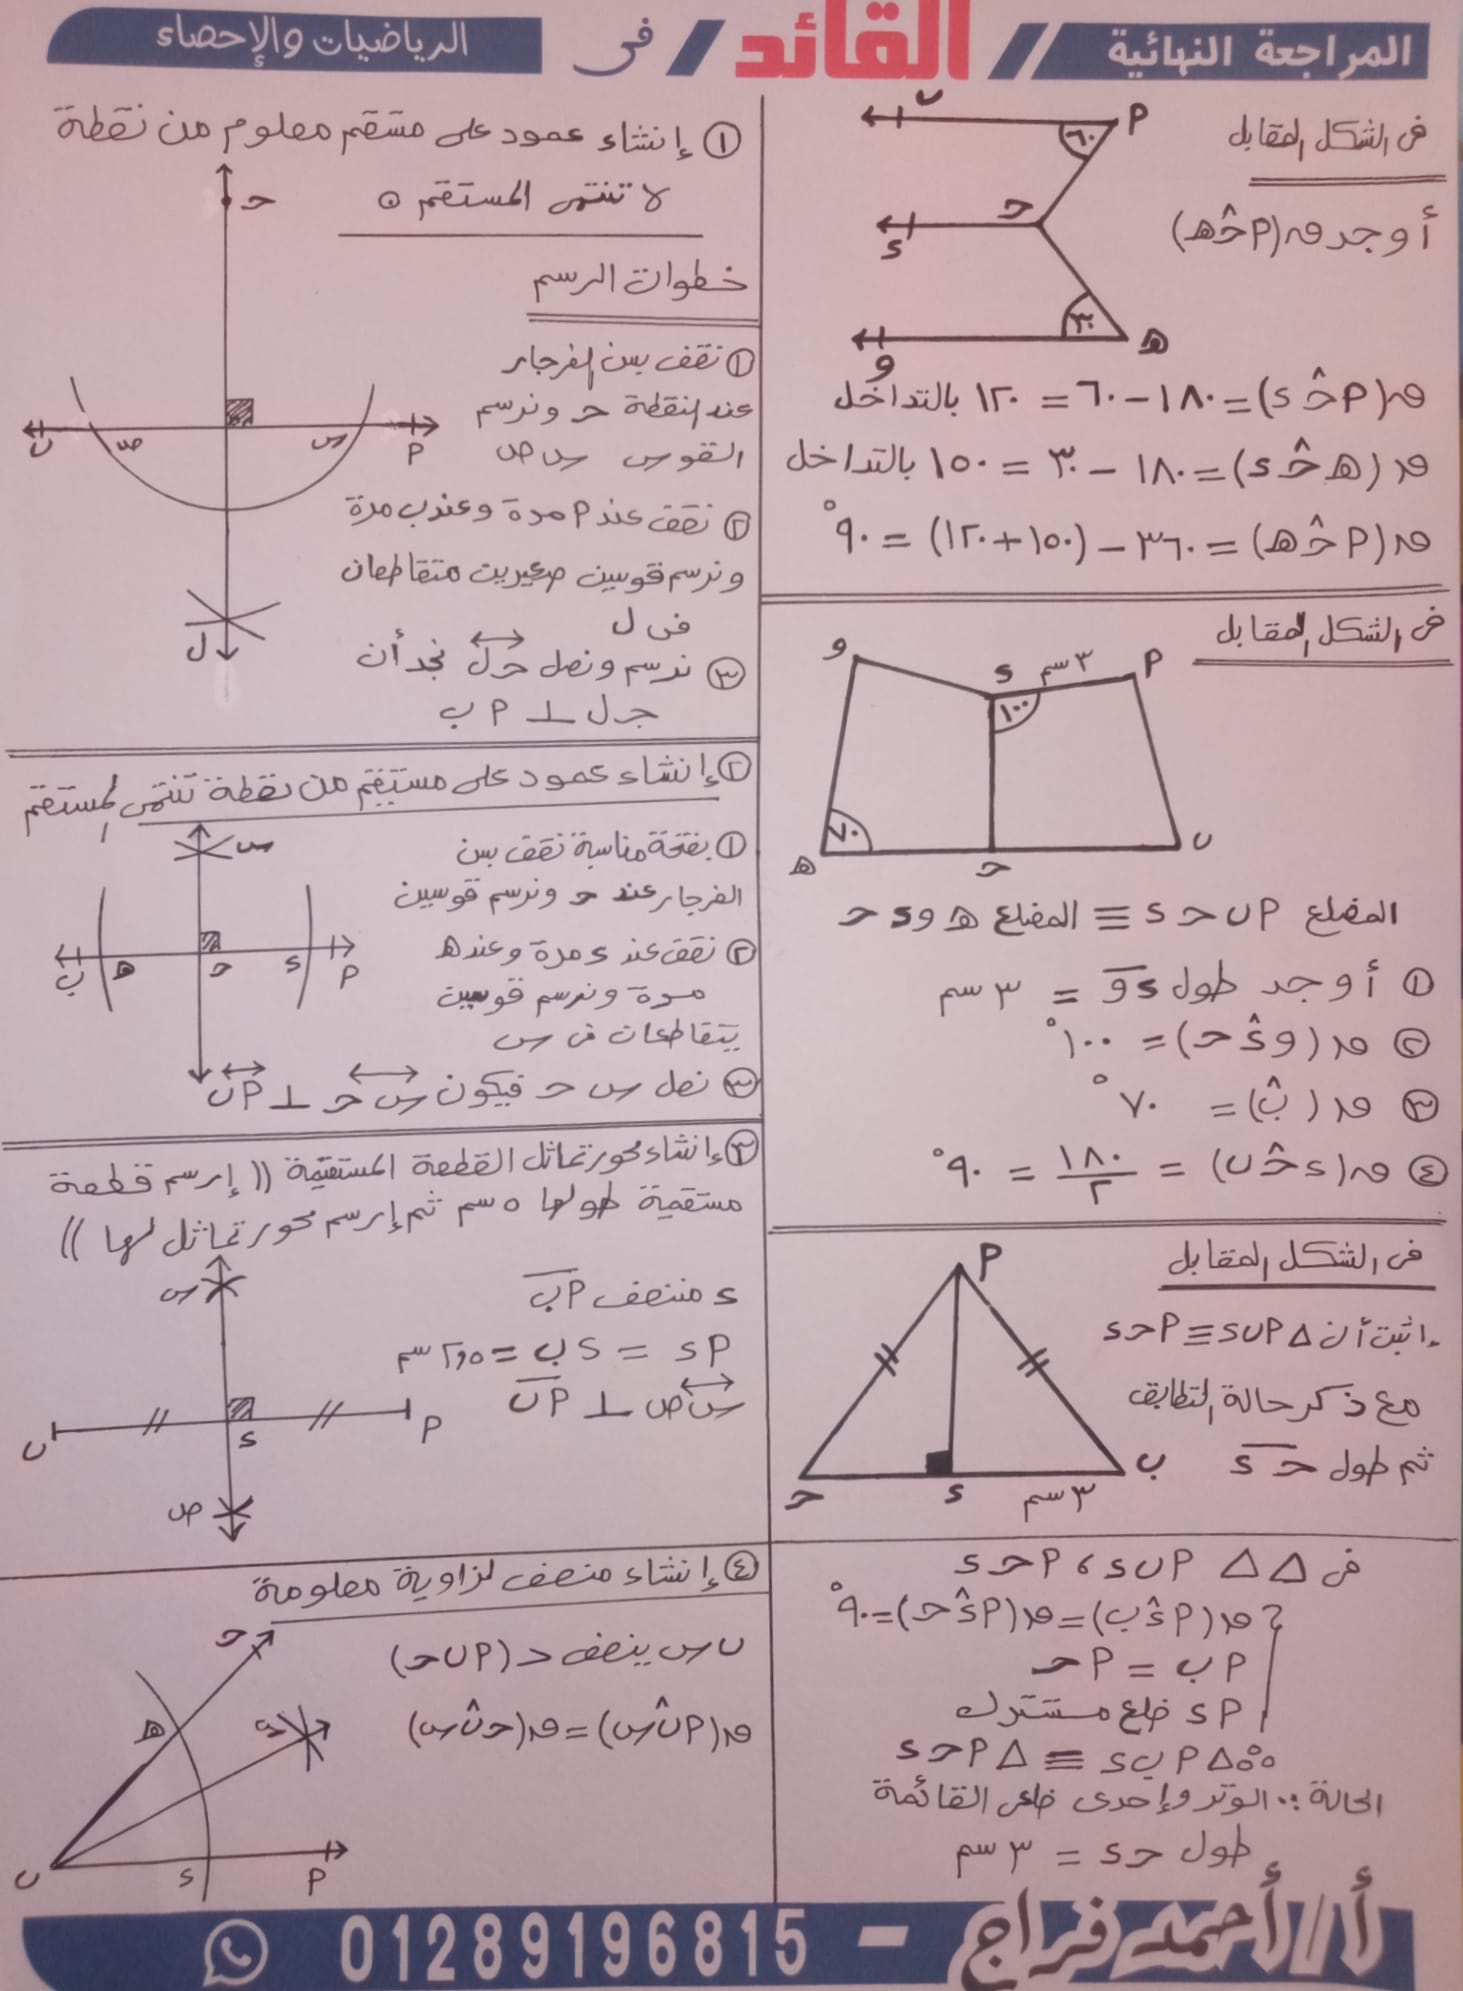 المراجعة النهائية // القائد / فى الرياضيات والإحصاء
فى الشكل المقابل
أوجد ق(أ حـ هـ)
أ
ب
حـ
د
هـ
و
٦٠
٣٠
ق(أ حـ د) = ١٨٠ - ٦٠ = ١٢٠ بالتداخل
ق(هـ حـ د) = ١٨٠ - ٣٠ = ١٥٠ بالتداخل
ق(أ حـ هـ) = ٣٦٠ - (١٥٠ + ١٢٠) = ٩٠°
فى الشكل المقابل
أ
٣ سم
د
و
١٠٠
٧٠
ب
حـ
هـ
المضلع أ ب حـ د ≡ المضلع هـ و د حـ
① أوجد طول د و = ٣ سم
② ق(و د حـ) = ١٠٠°
③ ق(ب) = ٧٠°
④ ق(د حـ ب) = ١٨٠/٢ = ٩٠°
فى الشكل المقابل
اثبت أن △ أ ب د ≡ أ حـ د
مع ذكر حالة التطابق
ثم طول حـ د
أ
ب
٣ سم
د
حـ
فى △△ أ ب د ، أ حـ د
ق(أ د ب) = ق(أ د حـ) = ٩٠°
أ ب = أ حـ
أ د ضلع مشترك
∴ △ أ ب د ≡ △ أ حـ د
الحالة : الوتر وإحدى ضلعى القائمة
طول حـ د = ٣ سم
① إنشاء عمود على مستقيم معلوم من نقطة
لا تنتمى المستقيم
خطوات الرسم
① نقف بسن الفرجار
عند النقطة حـ ونرسم
القوس س ص
② نقف عند أ مرة وعند ب مرة
ونرسم قوسين صغيرين متقاطعان
فى ل
③ نرسم ونصل حـ ل نجد أن
جـ ل ⊥ أ ب
حـ
أ
س
ص
ب
ل
② إنشاء عمود على مستقيم من نقطة تنتمى لمستقيم
① بفتحة مناسبة نقف بسن
الفرجار عند حـ ونرسم قوسين
② نقف عند د مرة وعند هـ
مرة ونرسم قوسين
يتقاطعان فى س
③ نصل س حـ فيكون س حـ ⊥ أ ب
س
أ
د
حـ
هـ
ب
③ إنشاء محور تماثل القطعة المستقيمة (( إرسم قطعة
مستقيمة طولها ٥ سم ثم إرسم محور تماثل لها ))
د منتصف أ ب
أ د = د ب = ٢,٥ سم
س ص ⊥ أ ب
س
أ
د
ب
ص
④ إنشاء منصف لزاوية معلومة
ب س ينصف > (أ ب حـ)
ق(أ ب س) = ق(حـ ب س)
حـ
هـ
س
ب
د
أ
أ // أحمد فراج - 01289196815